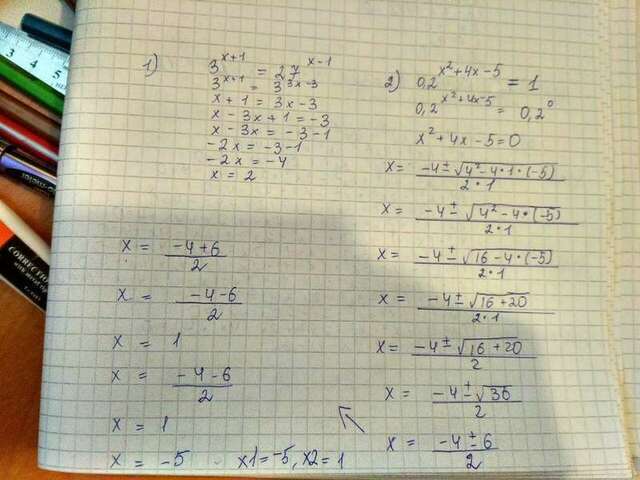 1)
3^(x+1) = 27^(x-1)
3^(x+1) = 3^(3x-3)
x + 1 = 3x - 3
x - 3x + 1 = -3
x - 3x = -3 - 1
-2x = -3-1
-2x = -4
x = 2
2) 0,2^(x²+4x-5) = 1
0,2^(x²+4x-5) = 0,2^0
x² + 4x - 5 = 0
x = (-4 ± √(4² - 4·1·(-5))) / (2·1)
x = (-4 ± √(4² - 4·(-5))) / (2·1)
x = (-4 ± √(16 - 4·(-5))) / (2·1)
x = (-4 ± √(16 + 20)) / (2·1)
x = (-4 ± √(16 + 20)) / 2
x = (-4 ± √36) / 2
x = (-4 ± 6) / 2
x = (-4 + 6) / 2
x = (-4 - 6) / 2
x = 1
x = (-4 - 6) / 2
x = 1
x = -5
x1 = -5, x2 = 1
CORRECTION